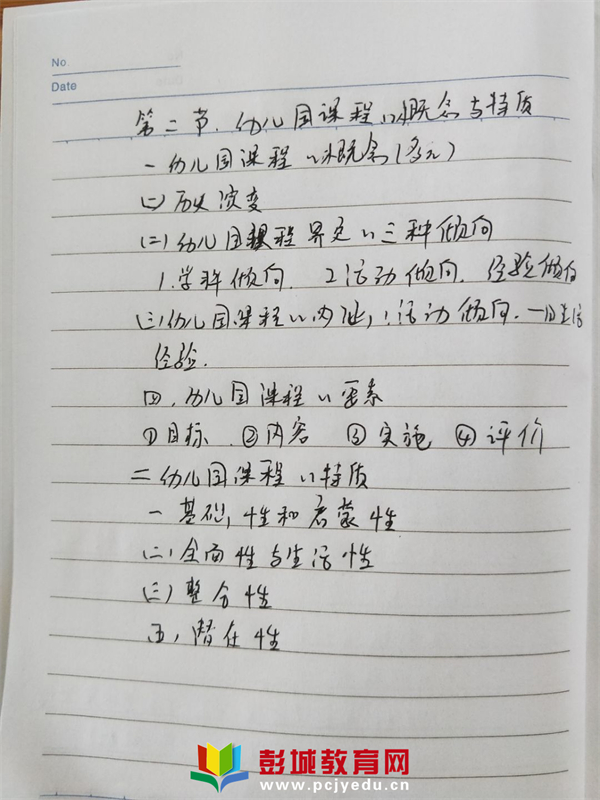 No
Date
第二节. 幼儿园课程的概念与特质
一 幼儿园课程的概念(多元)
(一) 历史演变
(二) 幼儿园课程界定的三种倾向
1. 学科倾向. 2 活动倾向. 经验倾向
(三) 幼儿园课程的内涵, : 活动倾向. 一日生活
经验.
四. 幼儿园课程的要素
① 目标 . ② 内容 ③ 实施 ④ 评价
二 幼儿园课程的特质
一 基础, 性和启蒙性
(二) 全面性与生活性
(三) 整合性
五, 潜在性
彭城教育网
www.pcjyedu.cn